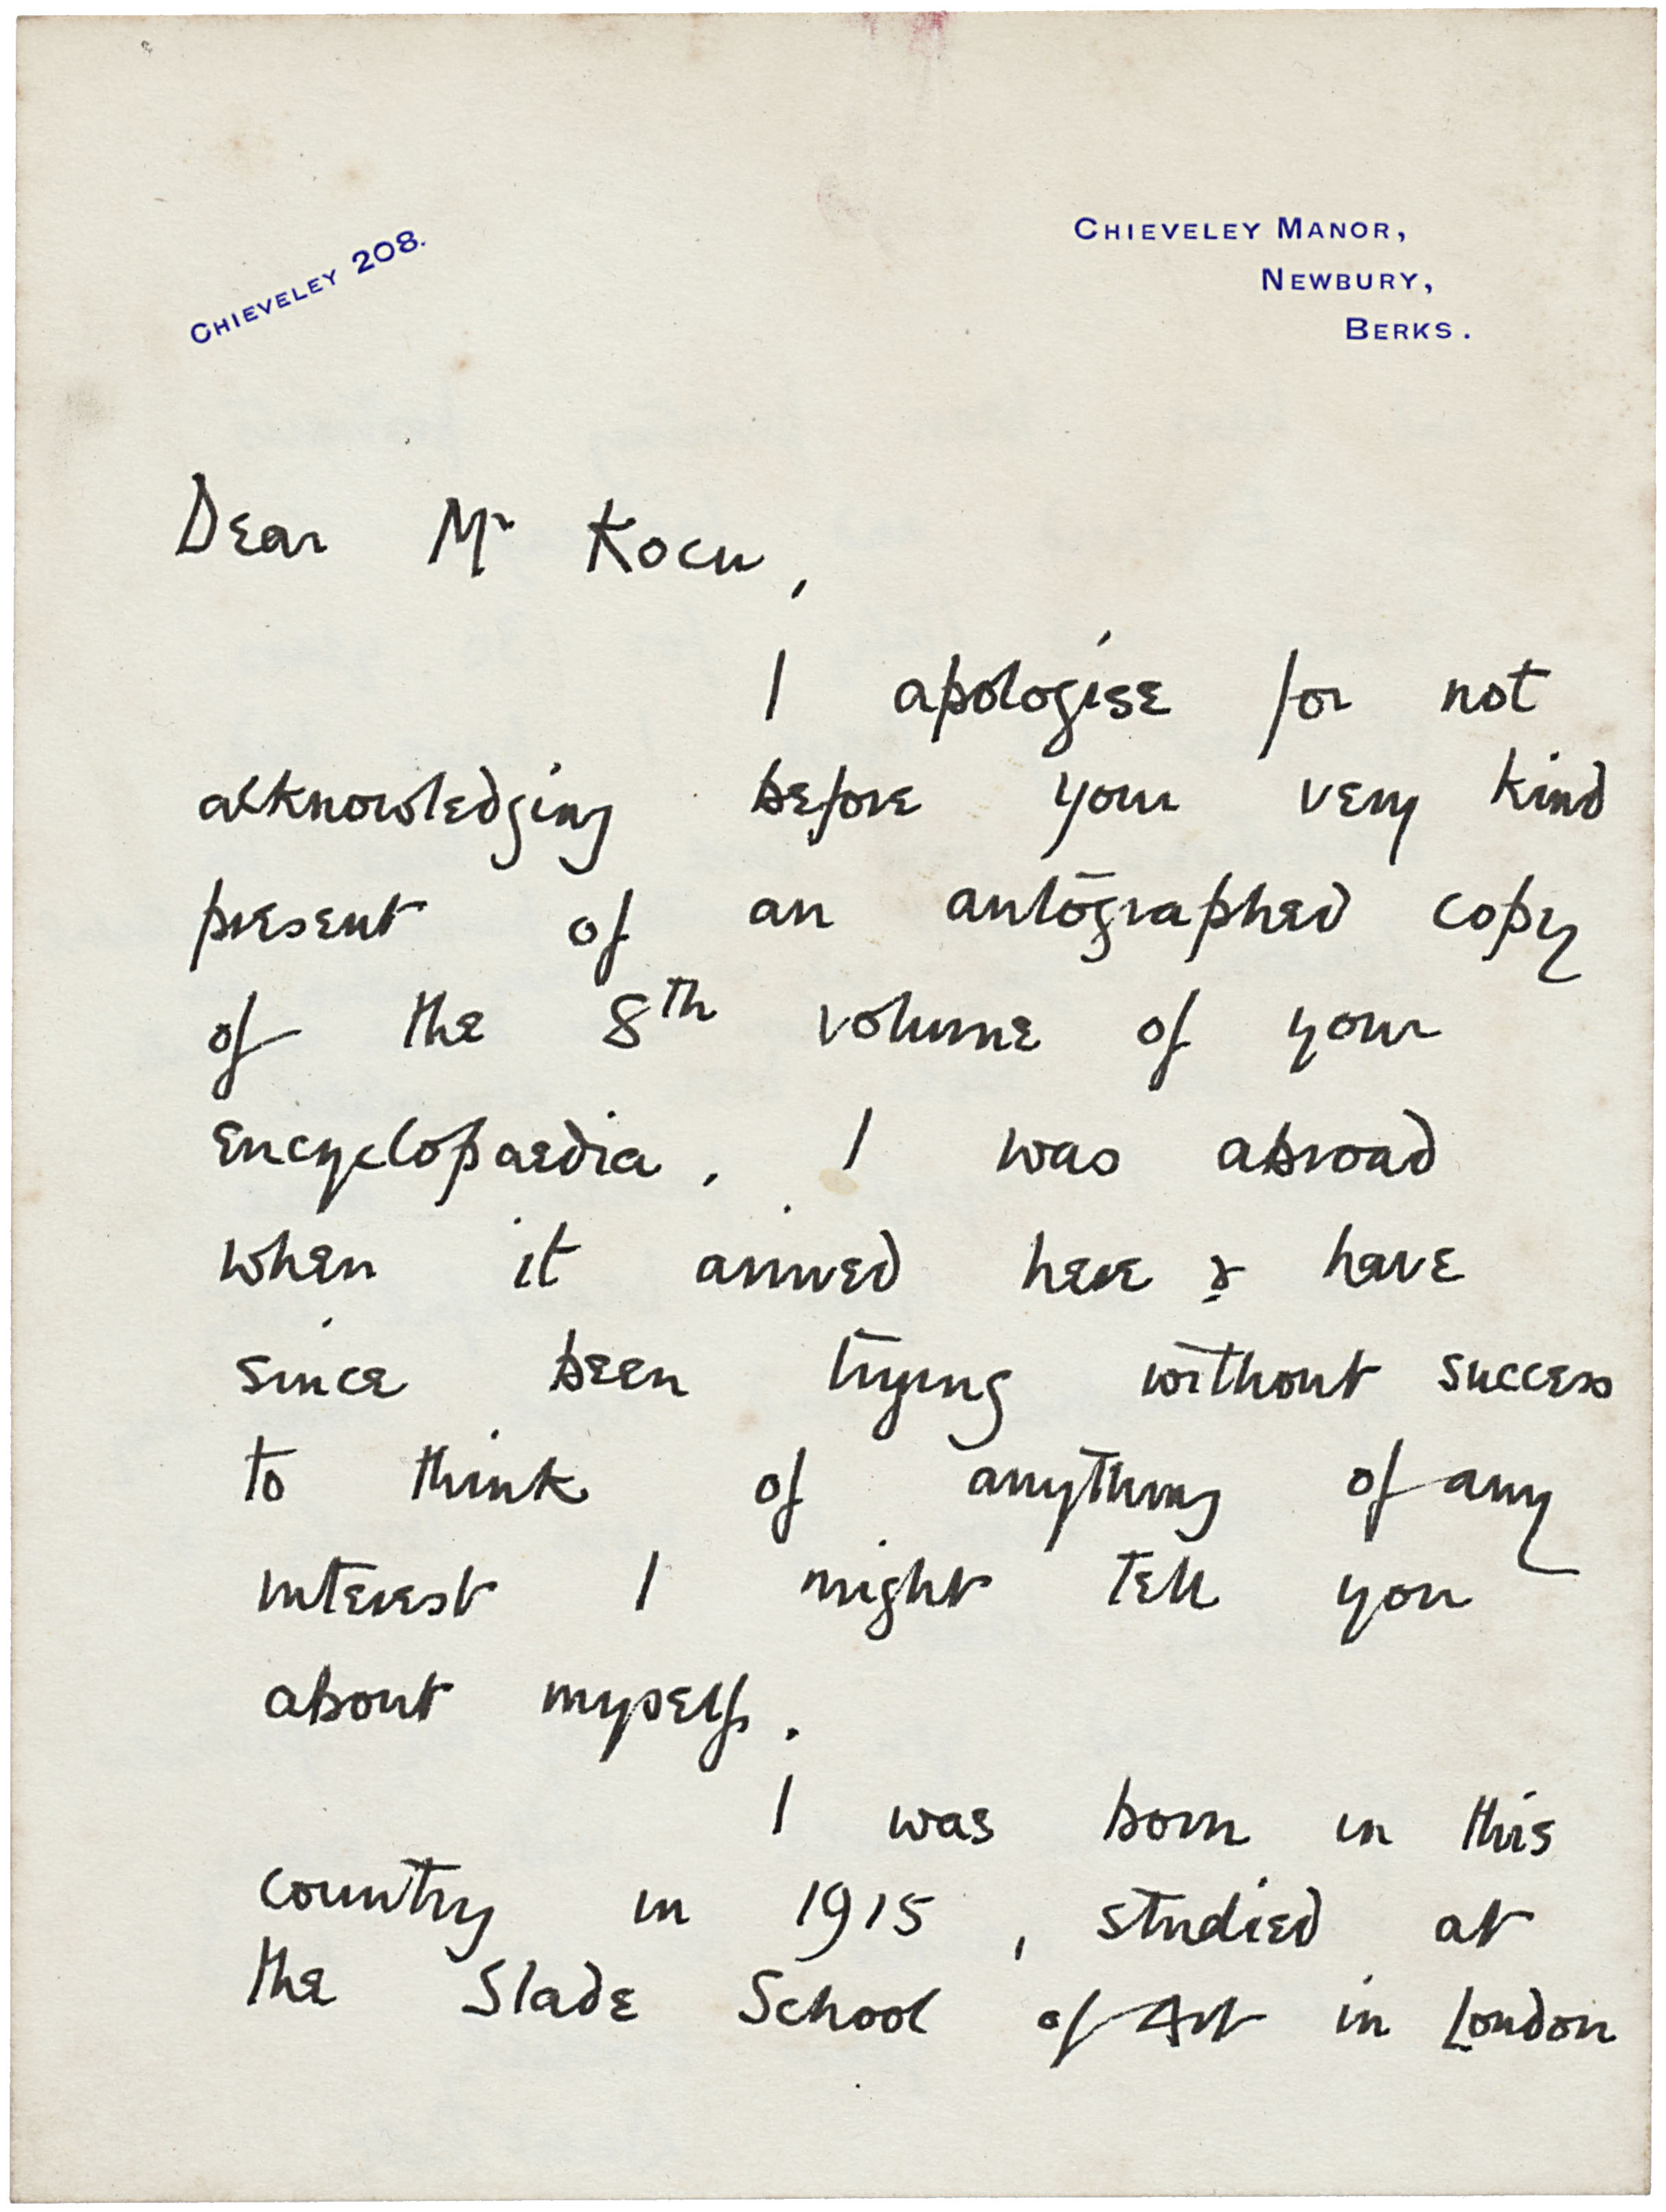 CHIEVELEY 208.
CHIEVELEY MANOR,
NEWBURY,
BERKS.
Dear Mr Koch,
I apologise for not
acknowledging before your very kind
present of an autographed copy
of the 8th volume of your
encyclopaedia. I was abroad
when it arrived here & have
since been trying without success
to think of anything of any
interest I might tell you
about myself.
I was born in this
country in 1915, studied at
the Slade School of Art in London